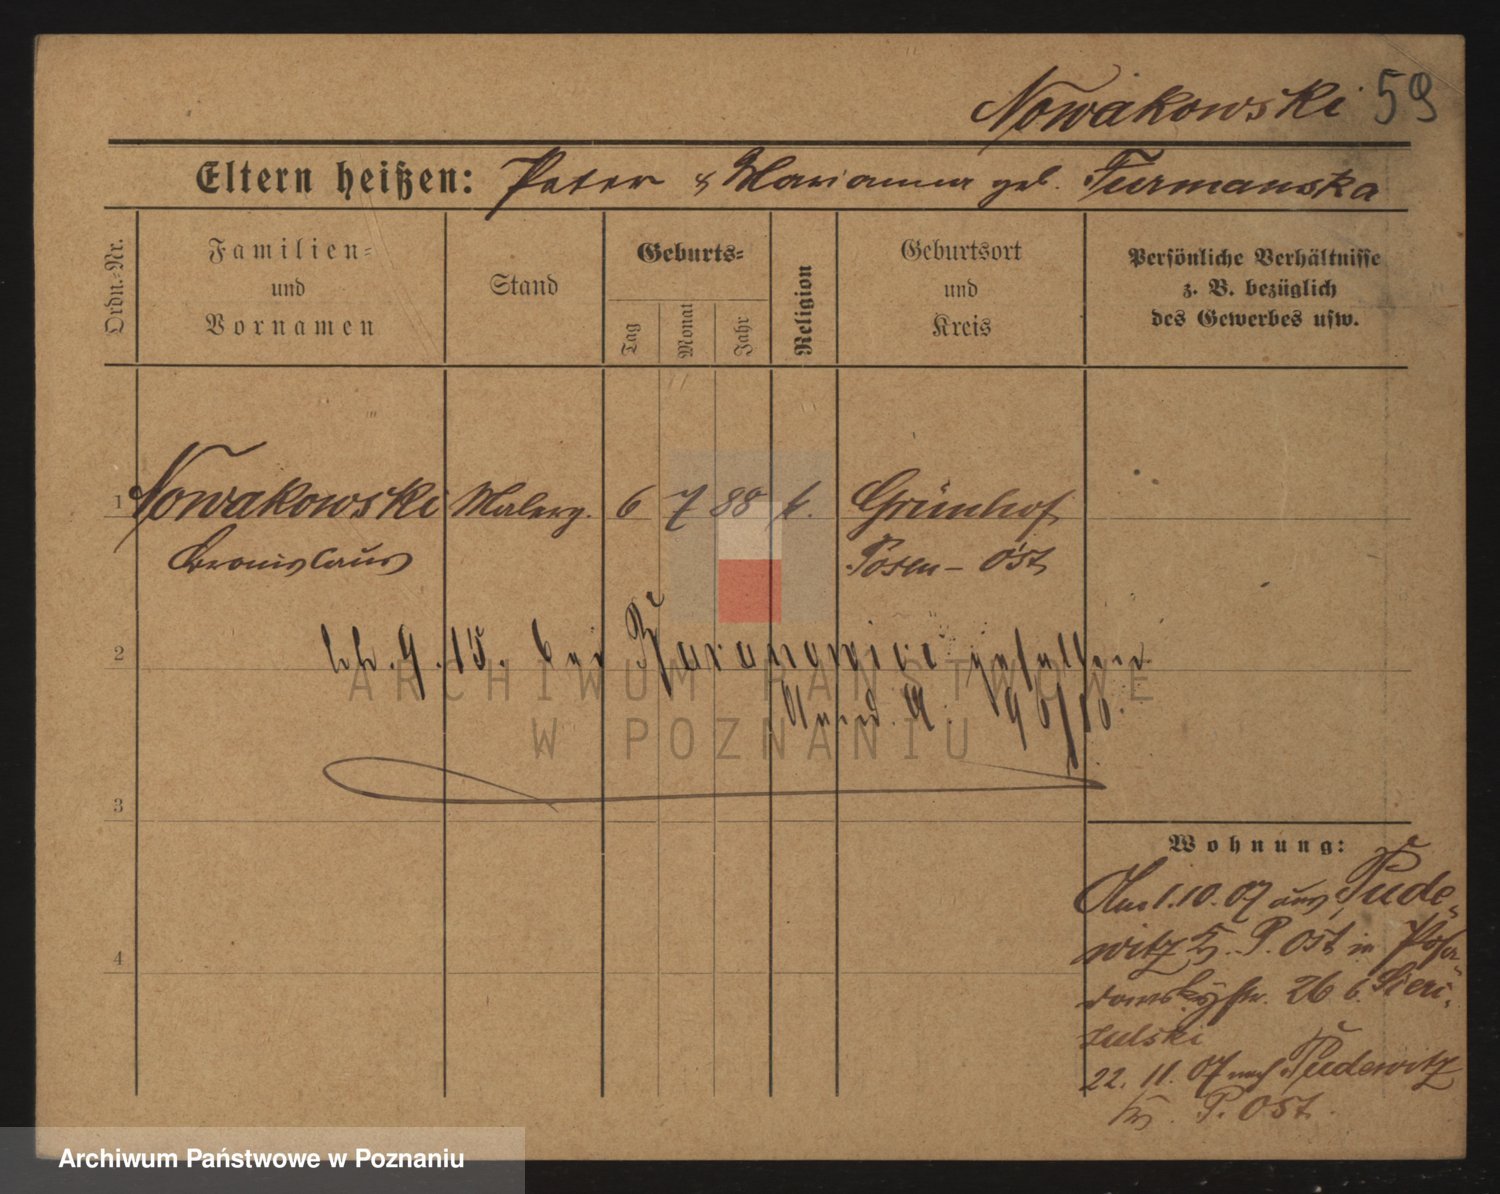 Nowakowski 59
Eltern heißen: Peter & Marianna geb. Furmanska
Ordn.-Nr.
Familien-
und
Vornamen
Stand
Geburts-
Tag
Monat
Jahr
Religion
Geburtsort
und
Kreis
Persönliche Verhältnisse
z. B. bezüglich
des Gewerbes usw.
1 Nowakowski Malerg. 6 7 88 k. Grünhof
Bronislaus Posen-Ost
2
9. 15. bei Baranowice gefallen
ARCHIWUM PAŃSTWOWE
W POZNANIU
3
4
Wohnung:
Am 1.10.07 aus Pude-
witz Kr. P. Ost in Posen
26 b.
zulski
22. 11. 07 nach Pudewitz
Kr. P. Ost.
Archiwum Państwowe w Poznaniu